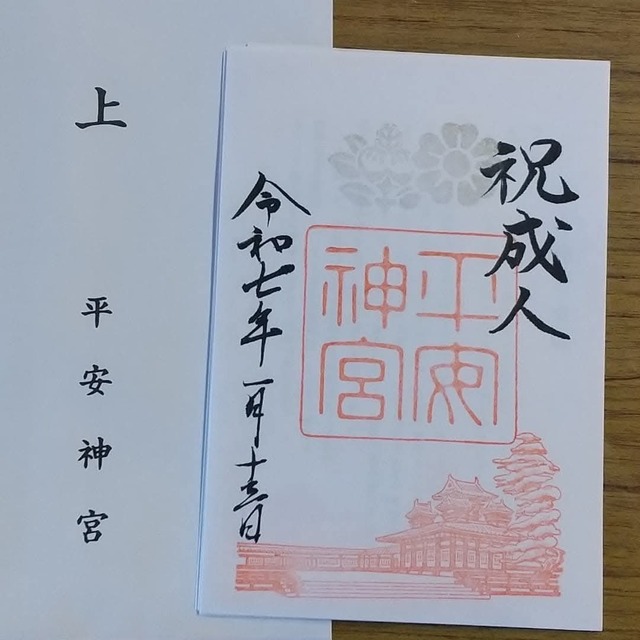 祝成人
平安神宮
令和七年一月十三日
上
平安神宮